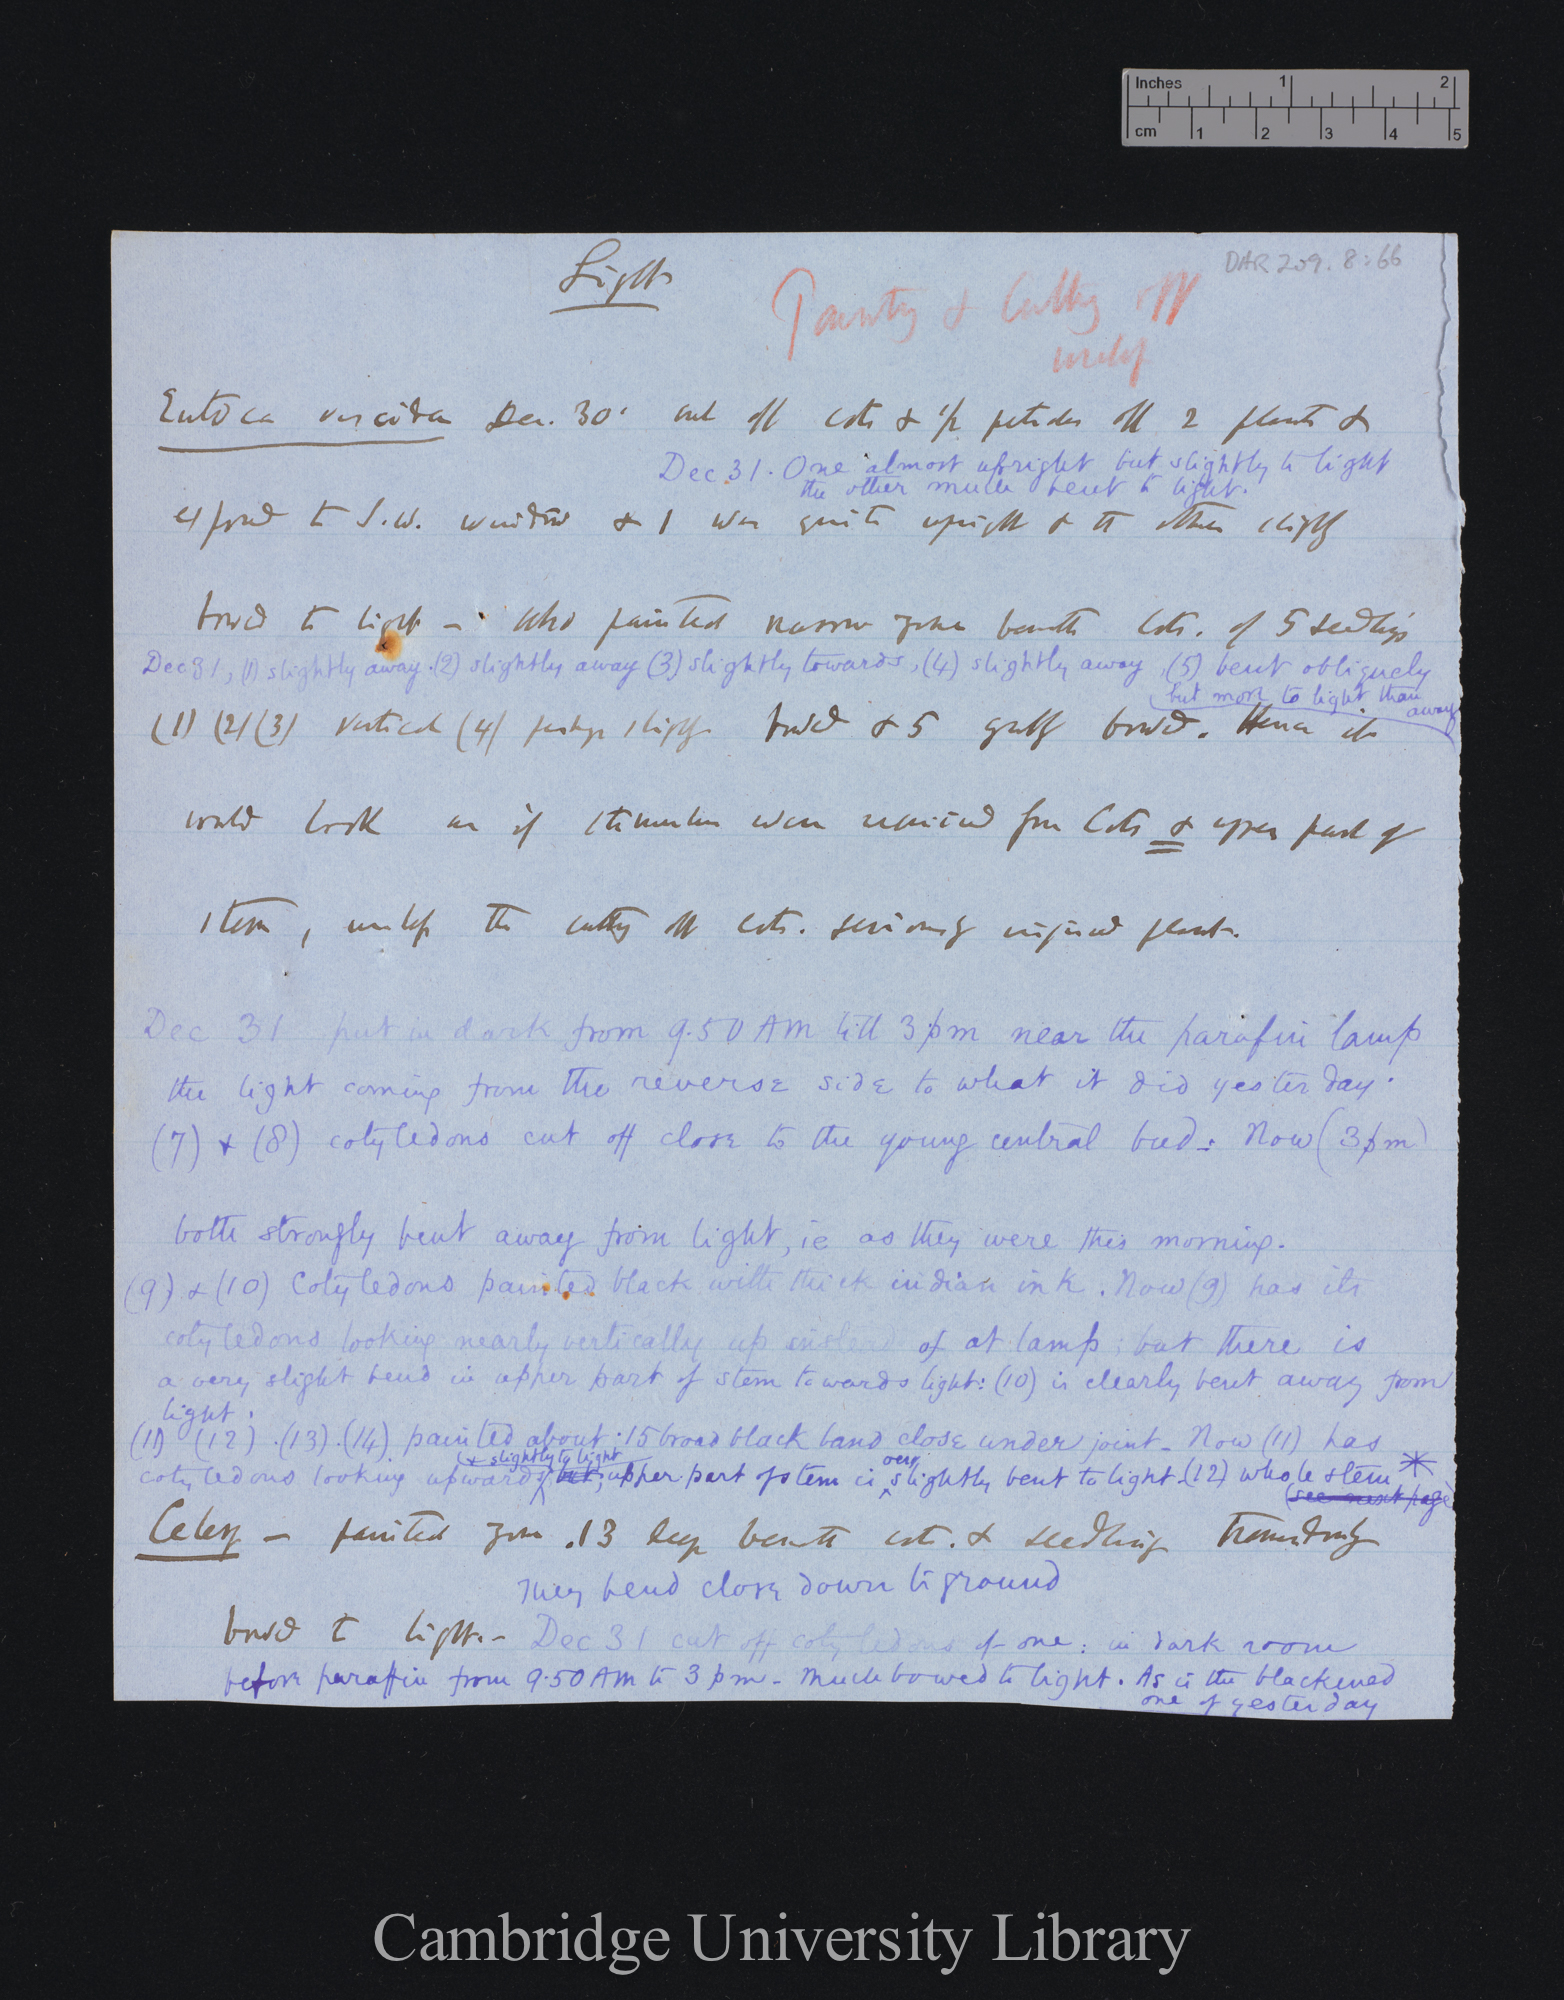 Inches 1 2
cm 1 2 3 4 5
DAR 209. 8:66
Light
Painting & Cutting off
Eutoca viscida Dec. 30' cut off cots & 1/2 petioles off 2 plants &
Dec 31. One almost upright but slightly to light
the other much bent to light.
exposed to S.W. window & 1 was quite upright & the other slightly
bowed to light – Also painted narrow zone beneath Cots. of 5 seedlings
Dec 31, (1) slightly away. (2) slightly away (3) slightly towards, (4) slightly away, (5) bent obliquely
but more to light than
away
(1) (2) (3) vertical (4) perhaps slightly bowed & 5 greatly bowed. Hence it
would look as if stimulus were received from Cots & upper part of
stem, unless the cutting off cots. seriously injured plant.
Dec 31 put in dark from 9.50 AM till 3 pm near the parafin lamp
the light coming from the reverse side to what it did yesterday.
(7) & (8) cotyledons cut off close to the young central bud: Now (3 pm)
both strongly bent away from light, ie as they were this morning.
(9) & (10) Cotyledons painted black with thick indian ink. Now (9) has its
cotyledons looking nearly vertically up instead of at lamp; but there is
a very slight bend in upper part of stem towards light: (10) is clearly bent away from
light.
(11) (12) (13) (14) painted about .15 broad black band close under joint – Now (11) has
& slightly to light
very
cotyledons looking upwards, but, upper part of stem is slightly bent to light. (12) whole stem *
(see next page)
Celery – painted zone .13 deep beneath cots. & seedling tremendously
They bend close down to ground
bowed to light. – Dec 31 cut off cotyledons of one: in dark room
before paraffin from 9.50 AM to 3 pm – Much bowed to light. As is the blackened
one of yesterday
Cambridge University Library